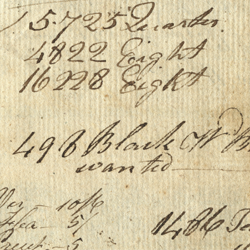 15725 Quarter
4822 Eight
16228 Eight
498 Black W
wanted
10/6
5/
1486
5